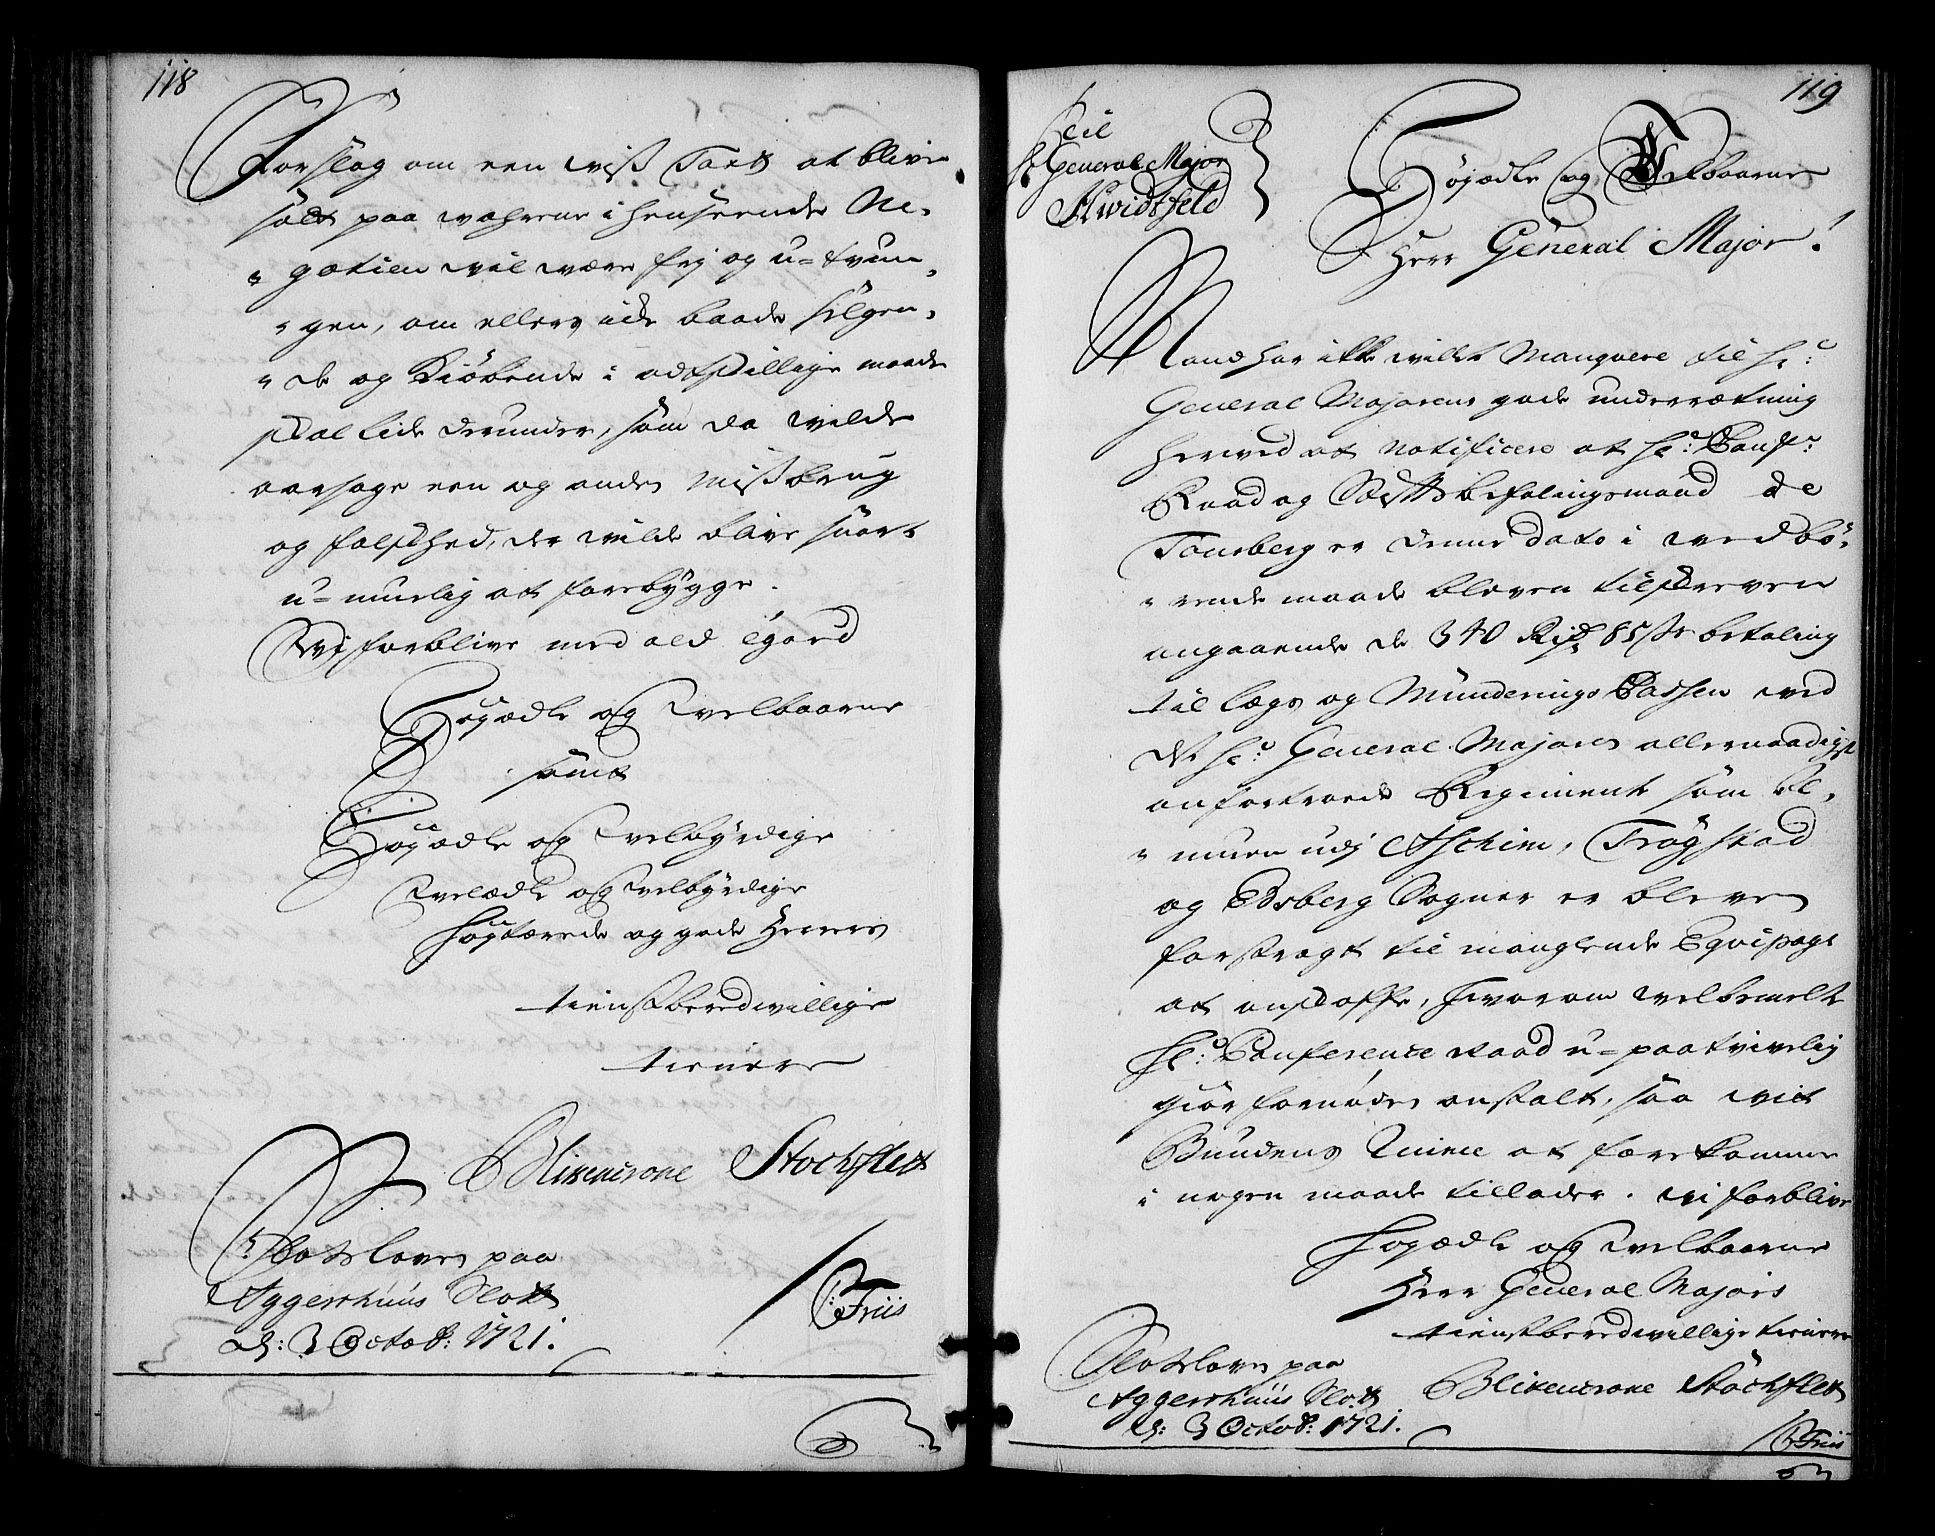 118
Forslag om een wiss Taxt at blive
satt paa wahrene i henseende Ne-
gotien vil være frj og u-tvun-
gen, om ellers icke baade sælgen-
de og Kiöbende i adskillige maade
skal lide derunder, som da vilde
aarsage een og anden Missbrug
og falskhed, der vilde blive snart
u-muelig at forebygge.
Wi forblive med ald Egard
Högædle og Welbaarne
samt
Högædle og Welbyrdige
Welædle og Welbyrdige
Högtærede og gode Herrers
tienstberedwillige
tienere
Blixencrone Stochflett
Slotzloven paa
Aggerrhuus Slott
d: 3 Octob: 1721.
Friis
119
Til
Hr General Major
Hwidtfeld
Högædle og Welbaarne
Herr General Major!
Mand har ikke willet Manqvere til Hr:
General Majorens gode underrætning
herved at Notificere at Hr: Conf:
Raad og Stiftsbefalingsmand de
Tonsberg er denne dato i wedbö-
rende maade bleven tilskreven
angaaende de 340 Rixd 85 s betaling
til Lægs og Munderings Cassen ved
det Hr: General Majoren allernaadigst
anfortroede Regiment som Al-
muen udj Aschim, Trögstad
og Edsberg Sogner er bleven
forstragt til manglende Eqvipage
at anskaffe, hvorom welbemelte
Hr: Conference Raad u-paatvivelig
giör fornöden anstalt, saa vit
Bundens Ruine at forekomme
i nogen maade tillader. wi forblive
Högædle og Welbaarne
Herr General Majors
tienstberedwillige tienere
Slotzloven paa
Aggerrhuus Slott
d: 3 Octob: 1721.
Blixencrone Stochflett
Friis